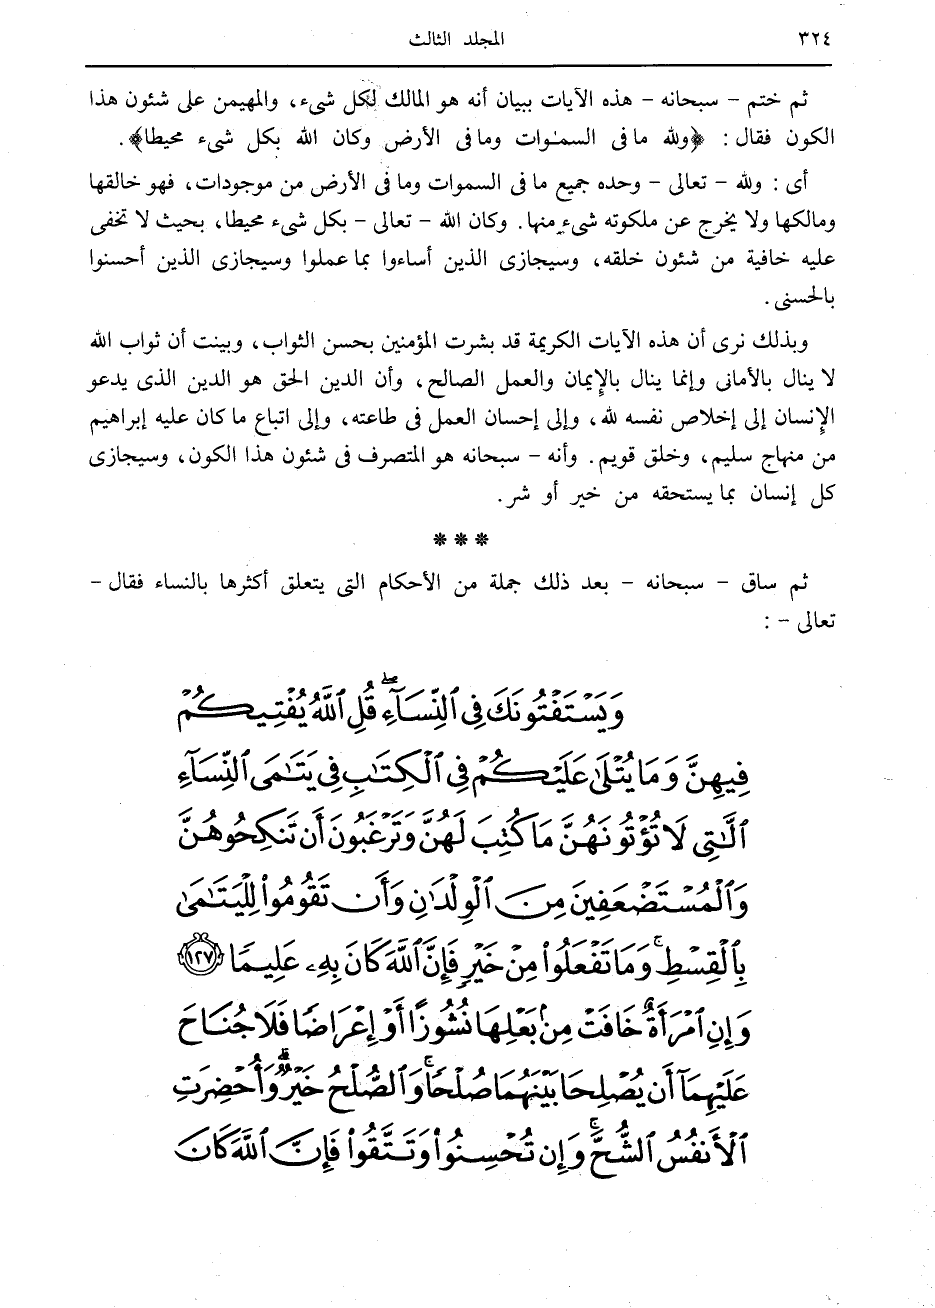 ٣٢٤
المجلد الثالث
ثم ختم – سبحانه – هذه الآيات ببيان أنه هو المالك لكل شىء، والمهيمن على شئون هذا
الكون فقال : ﴿ولله ما فى السمٰوات وما فى الأرض وكان الله بكل شىء محيطا﴾ .
أى : ولله – تعالى – وحده جميع ما فى السموات وما فى الأرض من موجودات، فهو خالقها
ومالكها ولا يخرج عن ملكوته شىء منها. وكان الله – تعالى – بكل شىء محيطا، بحيث لا تخفى
عليه خافية من شئون خلقه، وسيجازى الذين أساءوا بما عملوا وسيجازى الذين أحسنوا
بالحسنى .
وبذلك نرى أن هذه الآيات الكريمة قد بشرت المؤمنين بحسن الثواب، وبينت أن ثواب الله
لا ينال بالأمانى وإنما ينال بالإيمان والعمل الصالح، وأن الدين الحق هو الدين الذى يدعو
الإنسان إلى إخلاص نفسه لله، وإلى إحسان العمل فى طاعته، وإلى اتباع ما كان عليه إبراهيم
من منهاج سليم، وخلق قويم. وأنه – سبحانه هو المتصرف فى شئون هذا الكون، وسيجازى
كل إنسان بما يستحقه من خير أو شر.
* * *
ثم ساق – سبحانه – بعد ذلك جملة من الأحكام التى يتعلق أكثرها بالنساء فقال –
تعالى – :
وَيَسْتَفْتُونَكَ فِى ٱلنِّسَآءِ ۖ قُلِ ٱللَّهُ يُفْتِيكُمْ
فِيهِنَّ وَمَا يُتْلَىٰ عَلَيْكُمْ فِى ٱلْكِتَٰبِ فِى يَتَٰمَى ٱلنِّسَآءِ
ٱلَّٰتِى لَا تُؤْتُونَهُنَّ مَا كُتِبَ لَهُنَّ وَتَرْغَبُونَ أَن تَنكِحُوهُنَّ
وَٱلْمُسْتَضْعَفِينَ مِنَ ٱلْوِلْدَٰنِ وَأَن تَقُومُوا۟ لِلْيَتَٰمَىٰ
بِٱلْقِسْطِ ۚ وَمَا تَفْعَلُوا۟ مِنْ خَيْرٍ فَإِنَّ ٱللَّهَ كَانَ بِهِۦ عَلِيمًا ﴿١٢٧﴾
وَإِنِ ٱمْرَأَةٌ خَافَتْ مِنۢ بَعْلِهَا نُشُوزًا أَوْ إِعْرَاضًا فَلَا جُنَاحَ
عَلَيْهِمَآ أَن يُصْلِحَا بَيْنَهُمَا صُلْحًا ۚ وَٱلصُّلْحُ خَيْرٌ ۗ وَأُحْضِرَتِ
ٱلْأَنفُسُ ٱلشُّحَّ ۚ وَإِن تُحْسِنُوا۟ وَتَتَّقُوا۟ فَإِنَّ ٱللَّهَ كَانَ